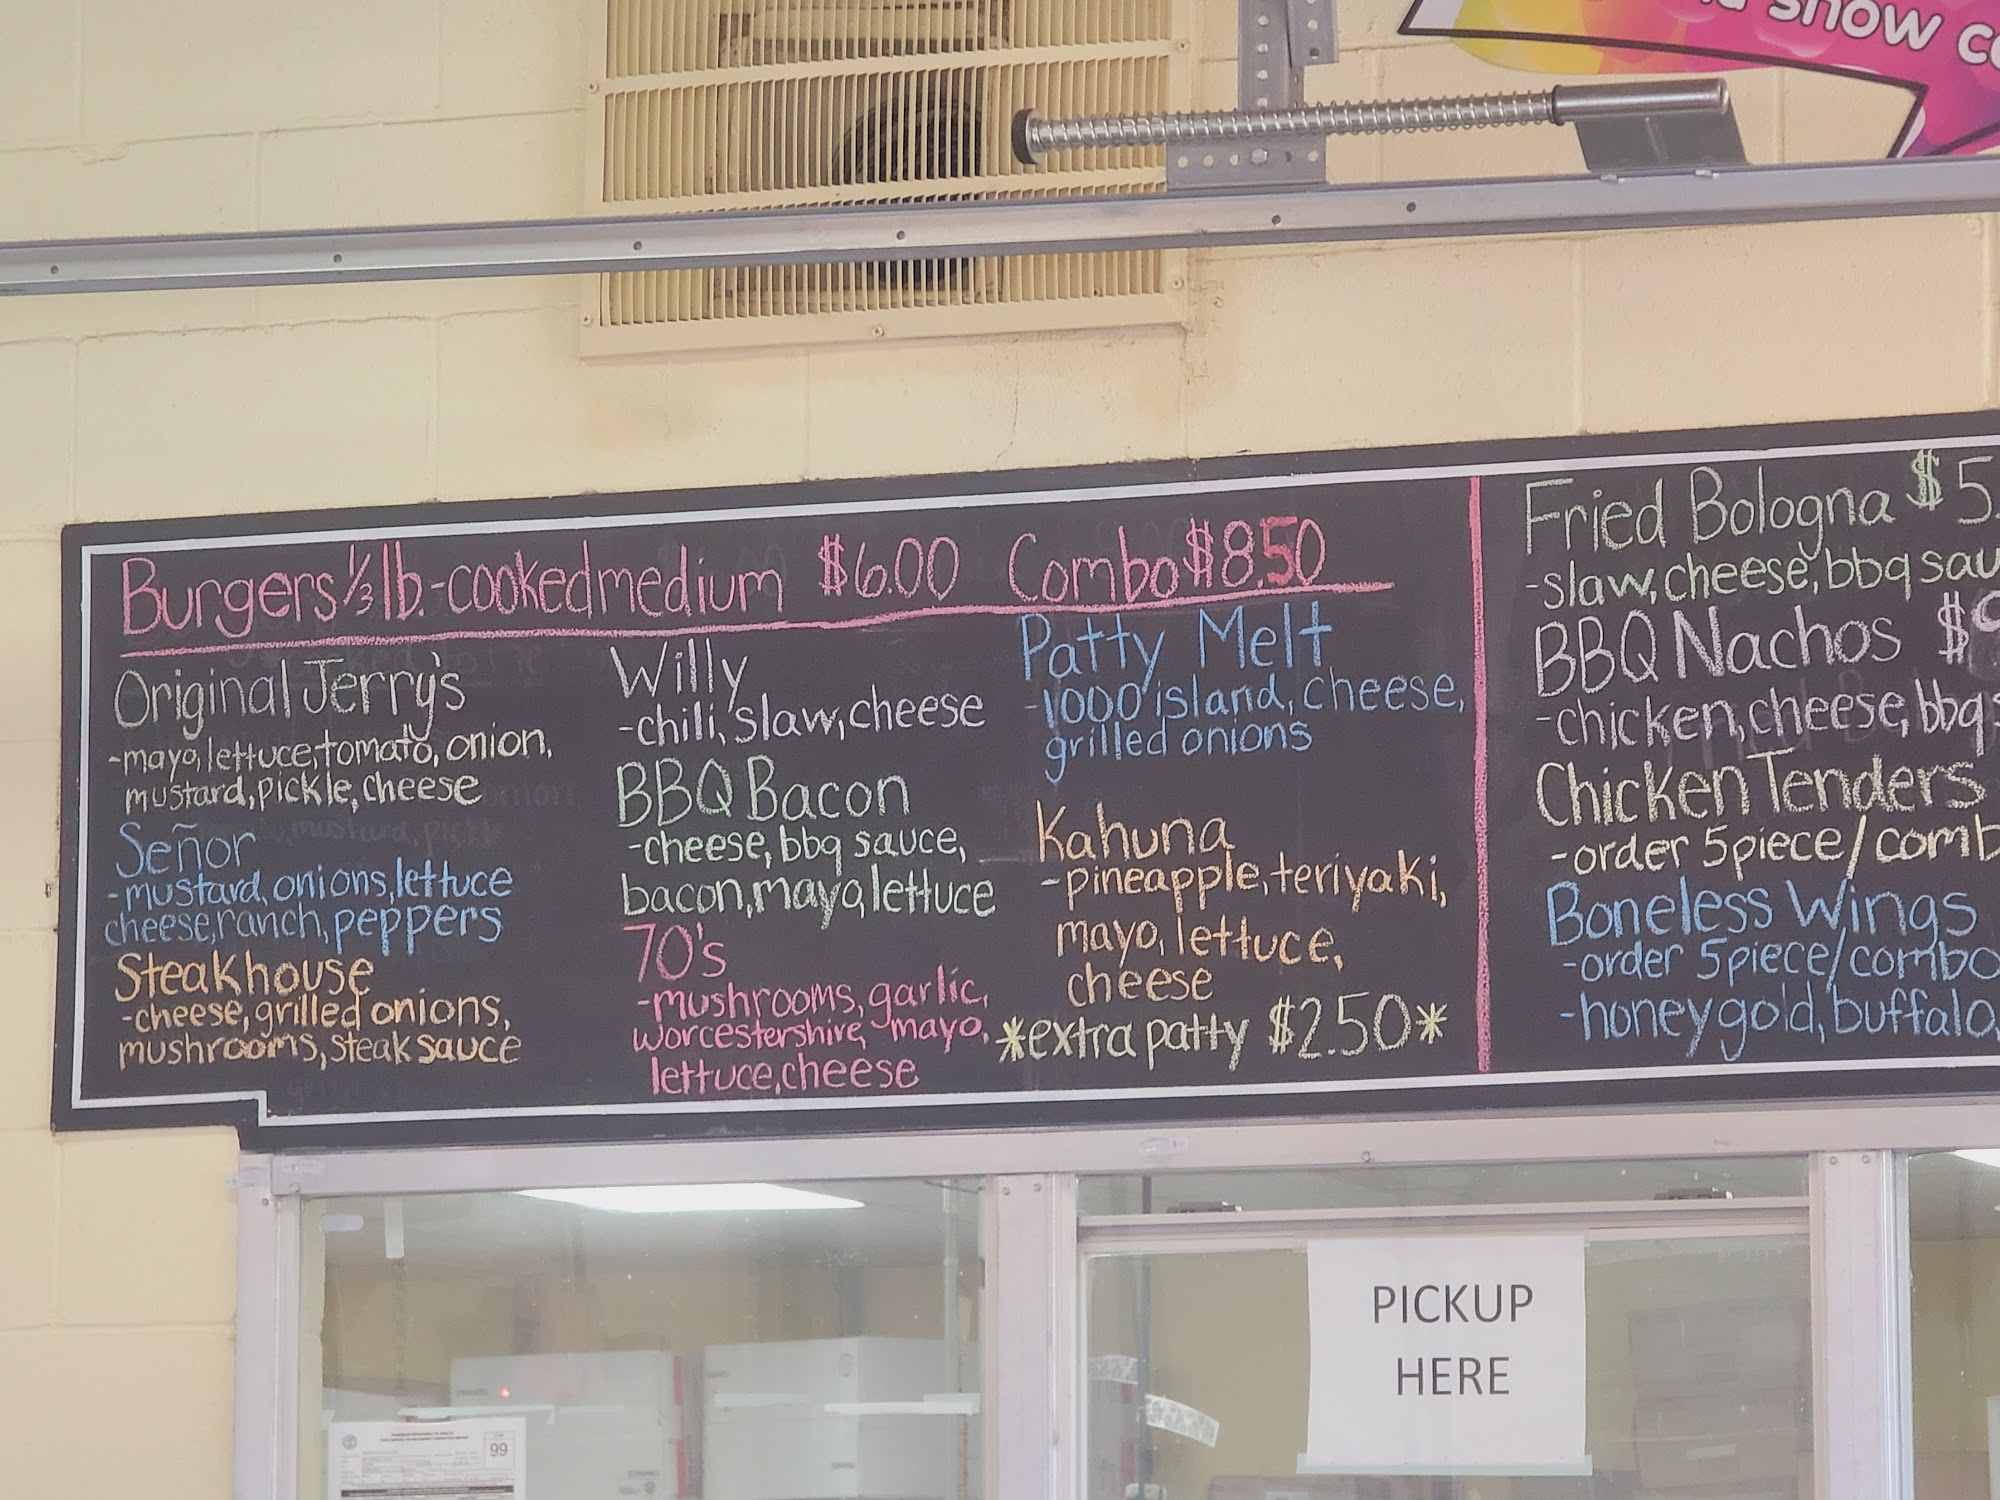 snow
Burgers 1/3 lb.-cooked medium $6.00 Combo $8.50
Original Jerry's
-mayo, lettuce, tomato, onion,
mustard, pickle, cheese
Señor
-mustard, onions, lettuce
cheese, ranch, peppers
Steakhouse
-cheese, grilled onions,
mushrooms, steak sauce
Willy
-chili, slaw, cheese
BBQ Bacon
-cheese, bbq sauce,
bacon, mayo, lettuce
70's
-mushrooms, garlic,
worcestershire, mayo,
lettuce, cheese
Patty Melt
-1000 island, cheese,
grilled onions
Kahuna
-pineapple, teriyaki,
mayo, lettuce,
cheese
*extra patty $2.50*
Fried Bologna $5.
-slaw, cheese, bbq sau
BBQ Nachos $
-chicken, cheese, bbq s
Chicken Tenders
-order 5 piece/comb
Boneless Wings
-order 5 piece/combo
-honey gold, buffalo,
PICKUP
HERE
99